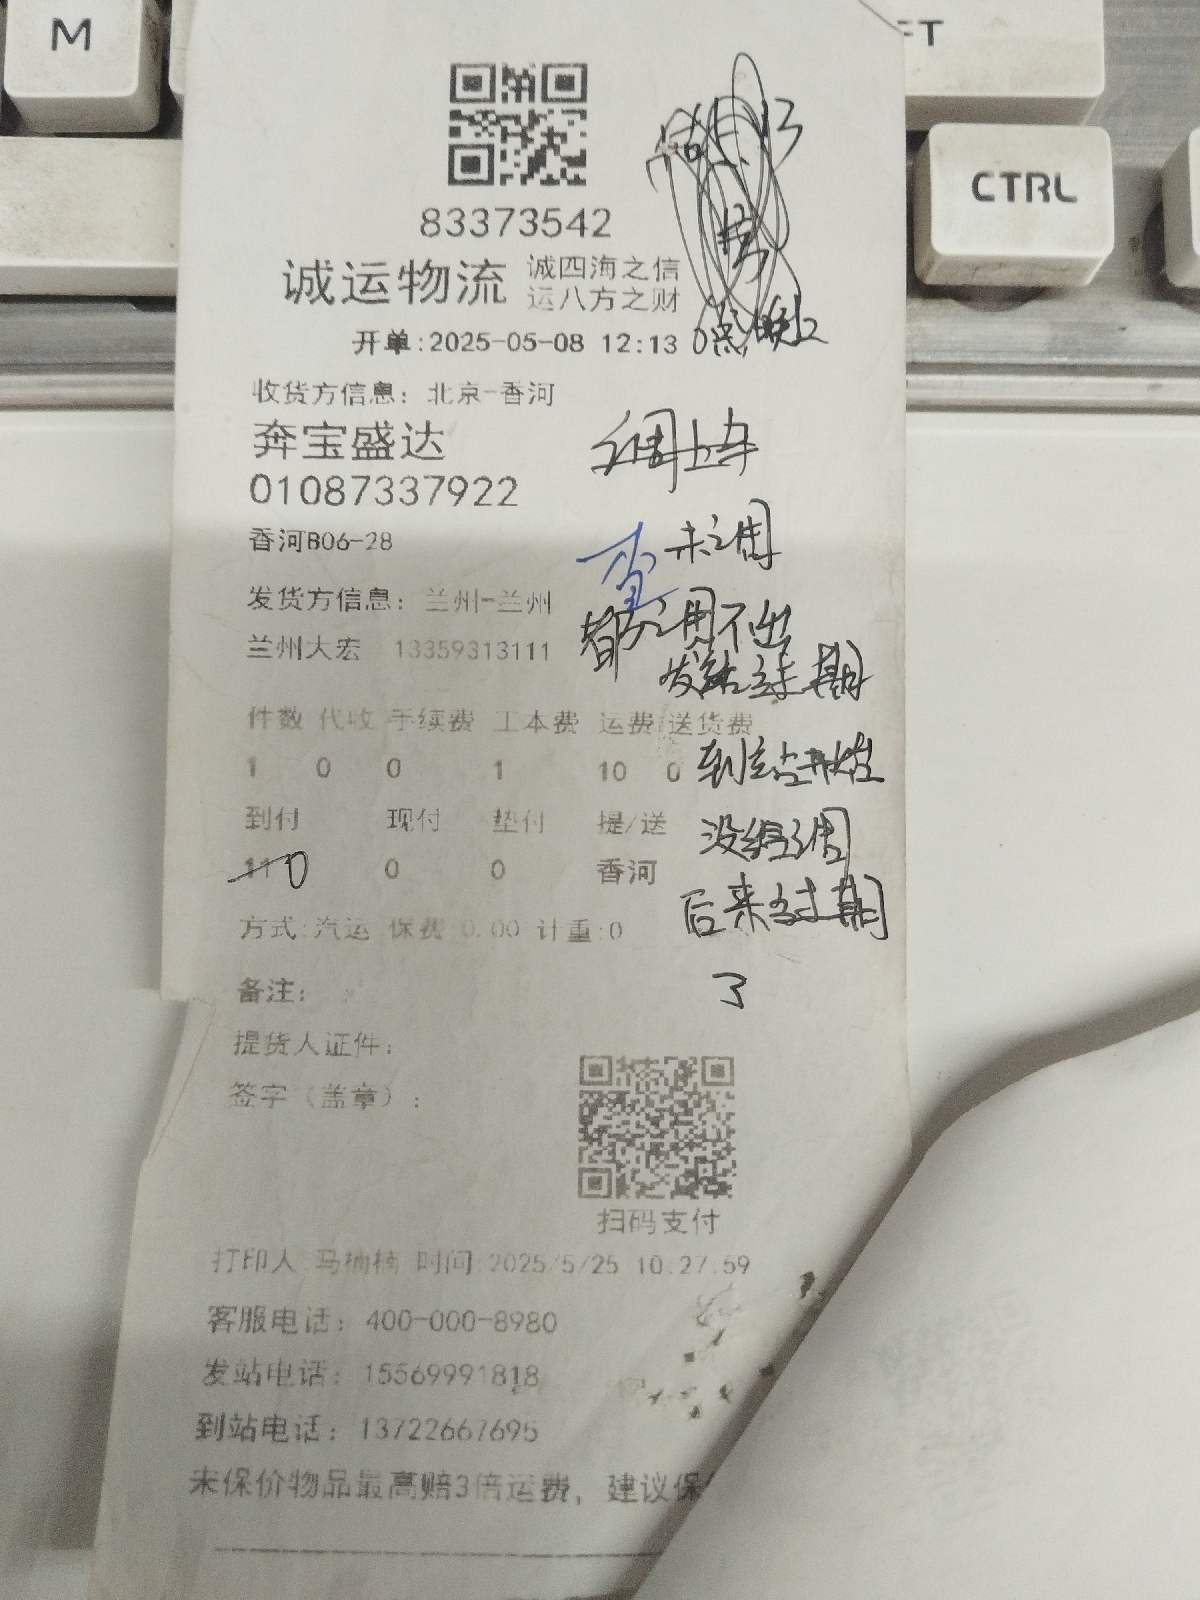 M
FT
CTRL
83373542
诚运物流 诚四海之信
运八方之财
开单:2025-05-08 12:13
收货方信息: 北京-香河
奔宝盛达
01087337922
香河B06-28
调上车
查 未调
都调不出
发站过期
到站开始
没给调
后来过期
了
发货方信息: 兰州-兰州
兰州大宏 13359313111
件数 代收 手续费 工本费 运费 送货费
1 0 0 1 10 0
到付 现付 垫付 提/送
11 0 0 0 香河
方式:汽运 保费 0.00 计重:0
备注:
提货人证件:
签字（盖章）:
扫码支付
打印人 马楠楠 时间:2025/5/25 10:27:59
客服电话: 400-000-8980
发站电话: 15569991818
到站电话: 13722667695
未保价物品最高赔3倍运费, 建议保